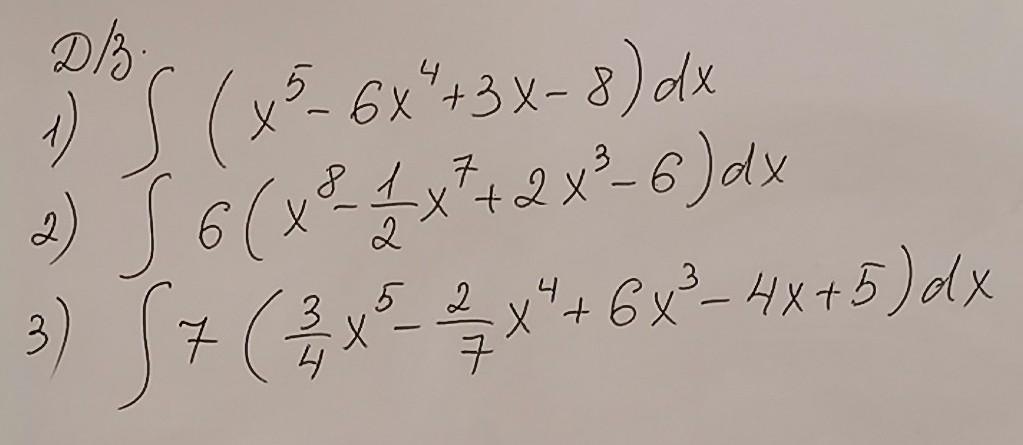 Д/З.
1) ∫ (x⁵ - 6x⁴ + 3x - 8) dx
2) ∫ 6 (x⁸ - 1/2 x⁷ + 2x³ - 6) dx
3) ∫ 7 (3/4 x⁵ - 2/7 x⁴ + 6x³ - 4x + 5) dx